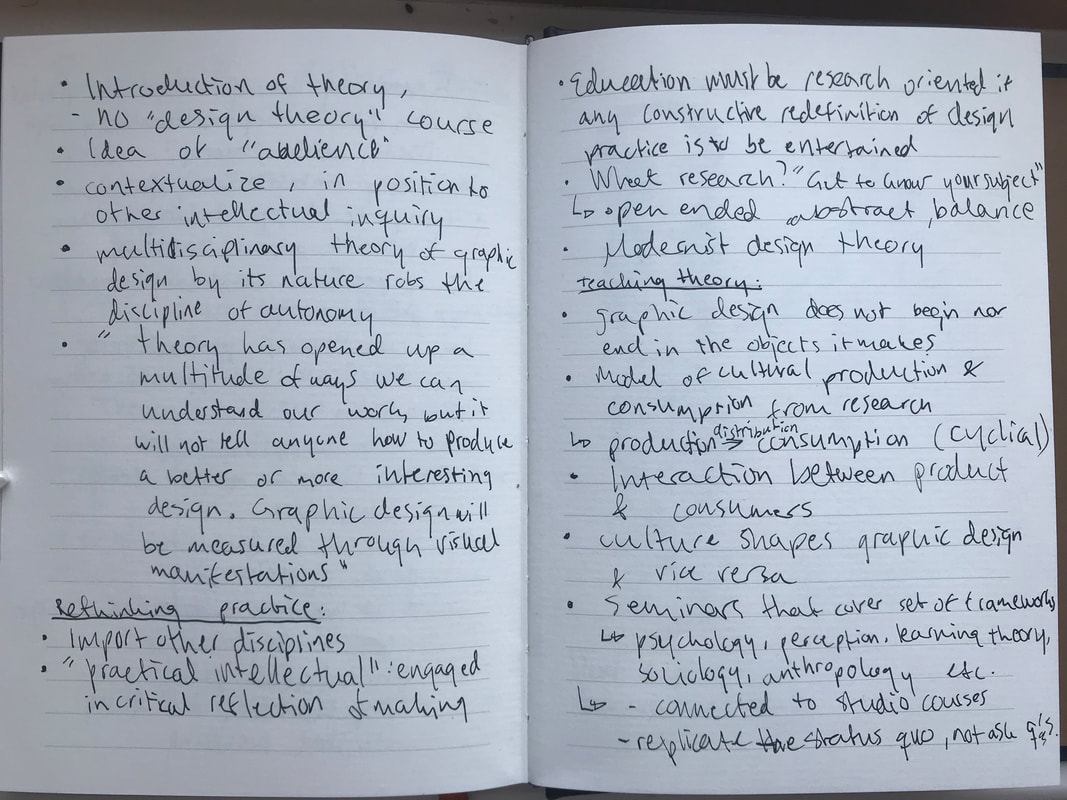 • Introduction of theory,
- no "design theory" course
• Idea of "abelience"
• contextualize, in position to
other intellectual inquiry
• multidisciplinary theory of graphic
design by its nature robs the
discipline of autonomy
• " theory has opened up a
multitude of ways we can
understand our work, but it
will not tell anyone how to produce
a better or more interesting
design. Graphic design will
be measured through visual
manifestations"
Rethinking practice:
• Import other disciplines
• "practical intellectual": engaged
in critical reflection of making
• Education must be research oriented if
any constructive redefinition of design
practice is to be entertained
• What research? "Get to know your subject"
↳ open ended, abstract, balance
• Modernist design theory
teaching theory:
• graphic design does not begin nor
end in the objects it makes
• Model of cultural production &
consumption from research
↳ production distribution → consumption (cyclical)
• Interaction between product
& consumers
• culture shapes graphic design
& vice versa
• Seminars that cover set of frameworks
↳ psychology, perception, learning theory,
sociology, anthropology etc.
↳ - connected to studio courses
- replicate the status quo, not ask q's.